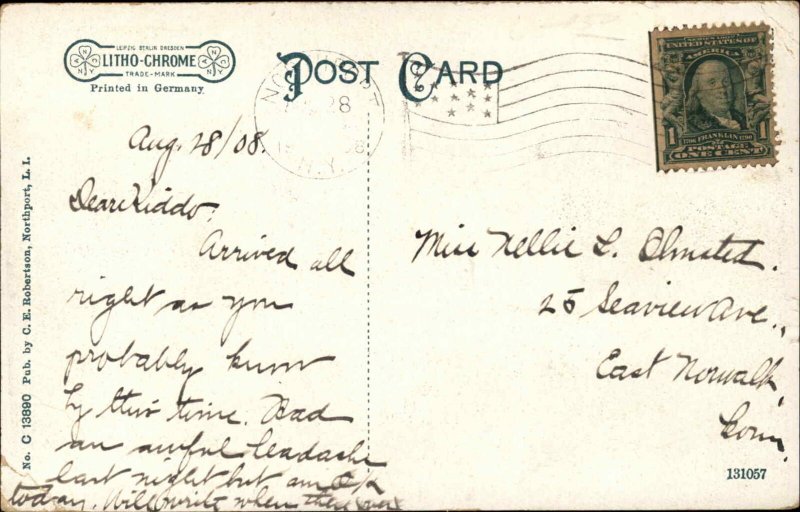 LEIPZIG BERLIN DRESDEN
LITHO-CHROME
TRADE-MARK
Printed in Germany
POST CARD
28
N.Y.
UNITED STATES OF
AMERICA
1706 FRANKLIN 1790
1 POSTAGE 1
ONE CENT
No. C 13890 Pub. by C. E. Robertson, Northport, L. I.
Aug. 28/08.
Dear Kiddo.
Arrived all
right as you
probably know
by this time. Had
an awful headache
last night but am O.K
today. Will write when there
Miss Nellie L. Olmsted.
25 Seaview Ave.,
East Norwalk,
Conn.
131057